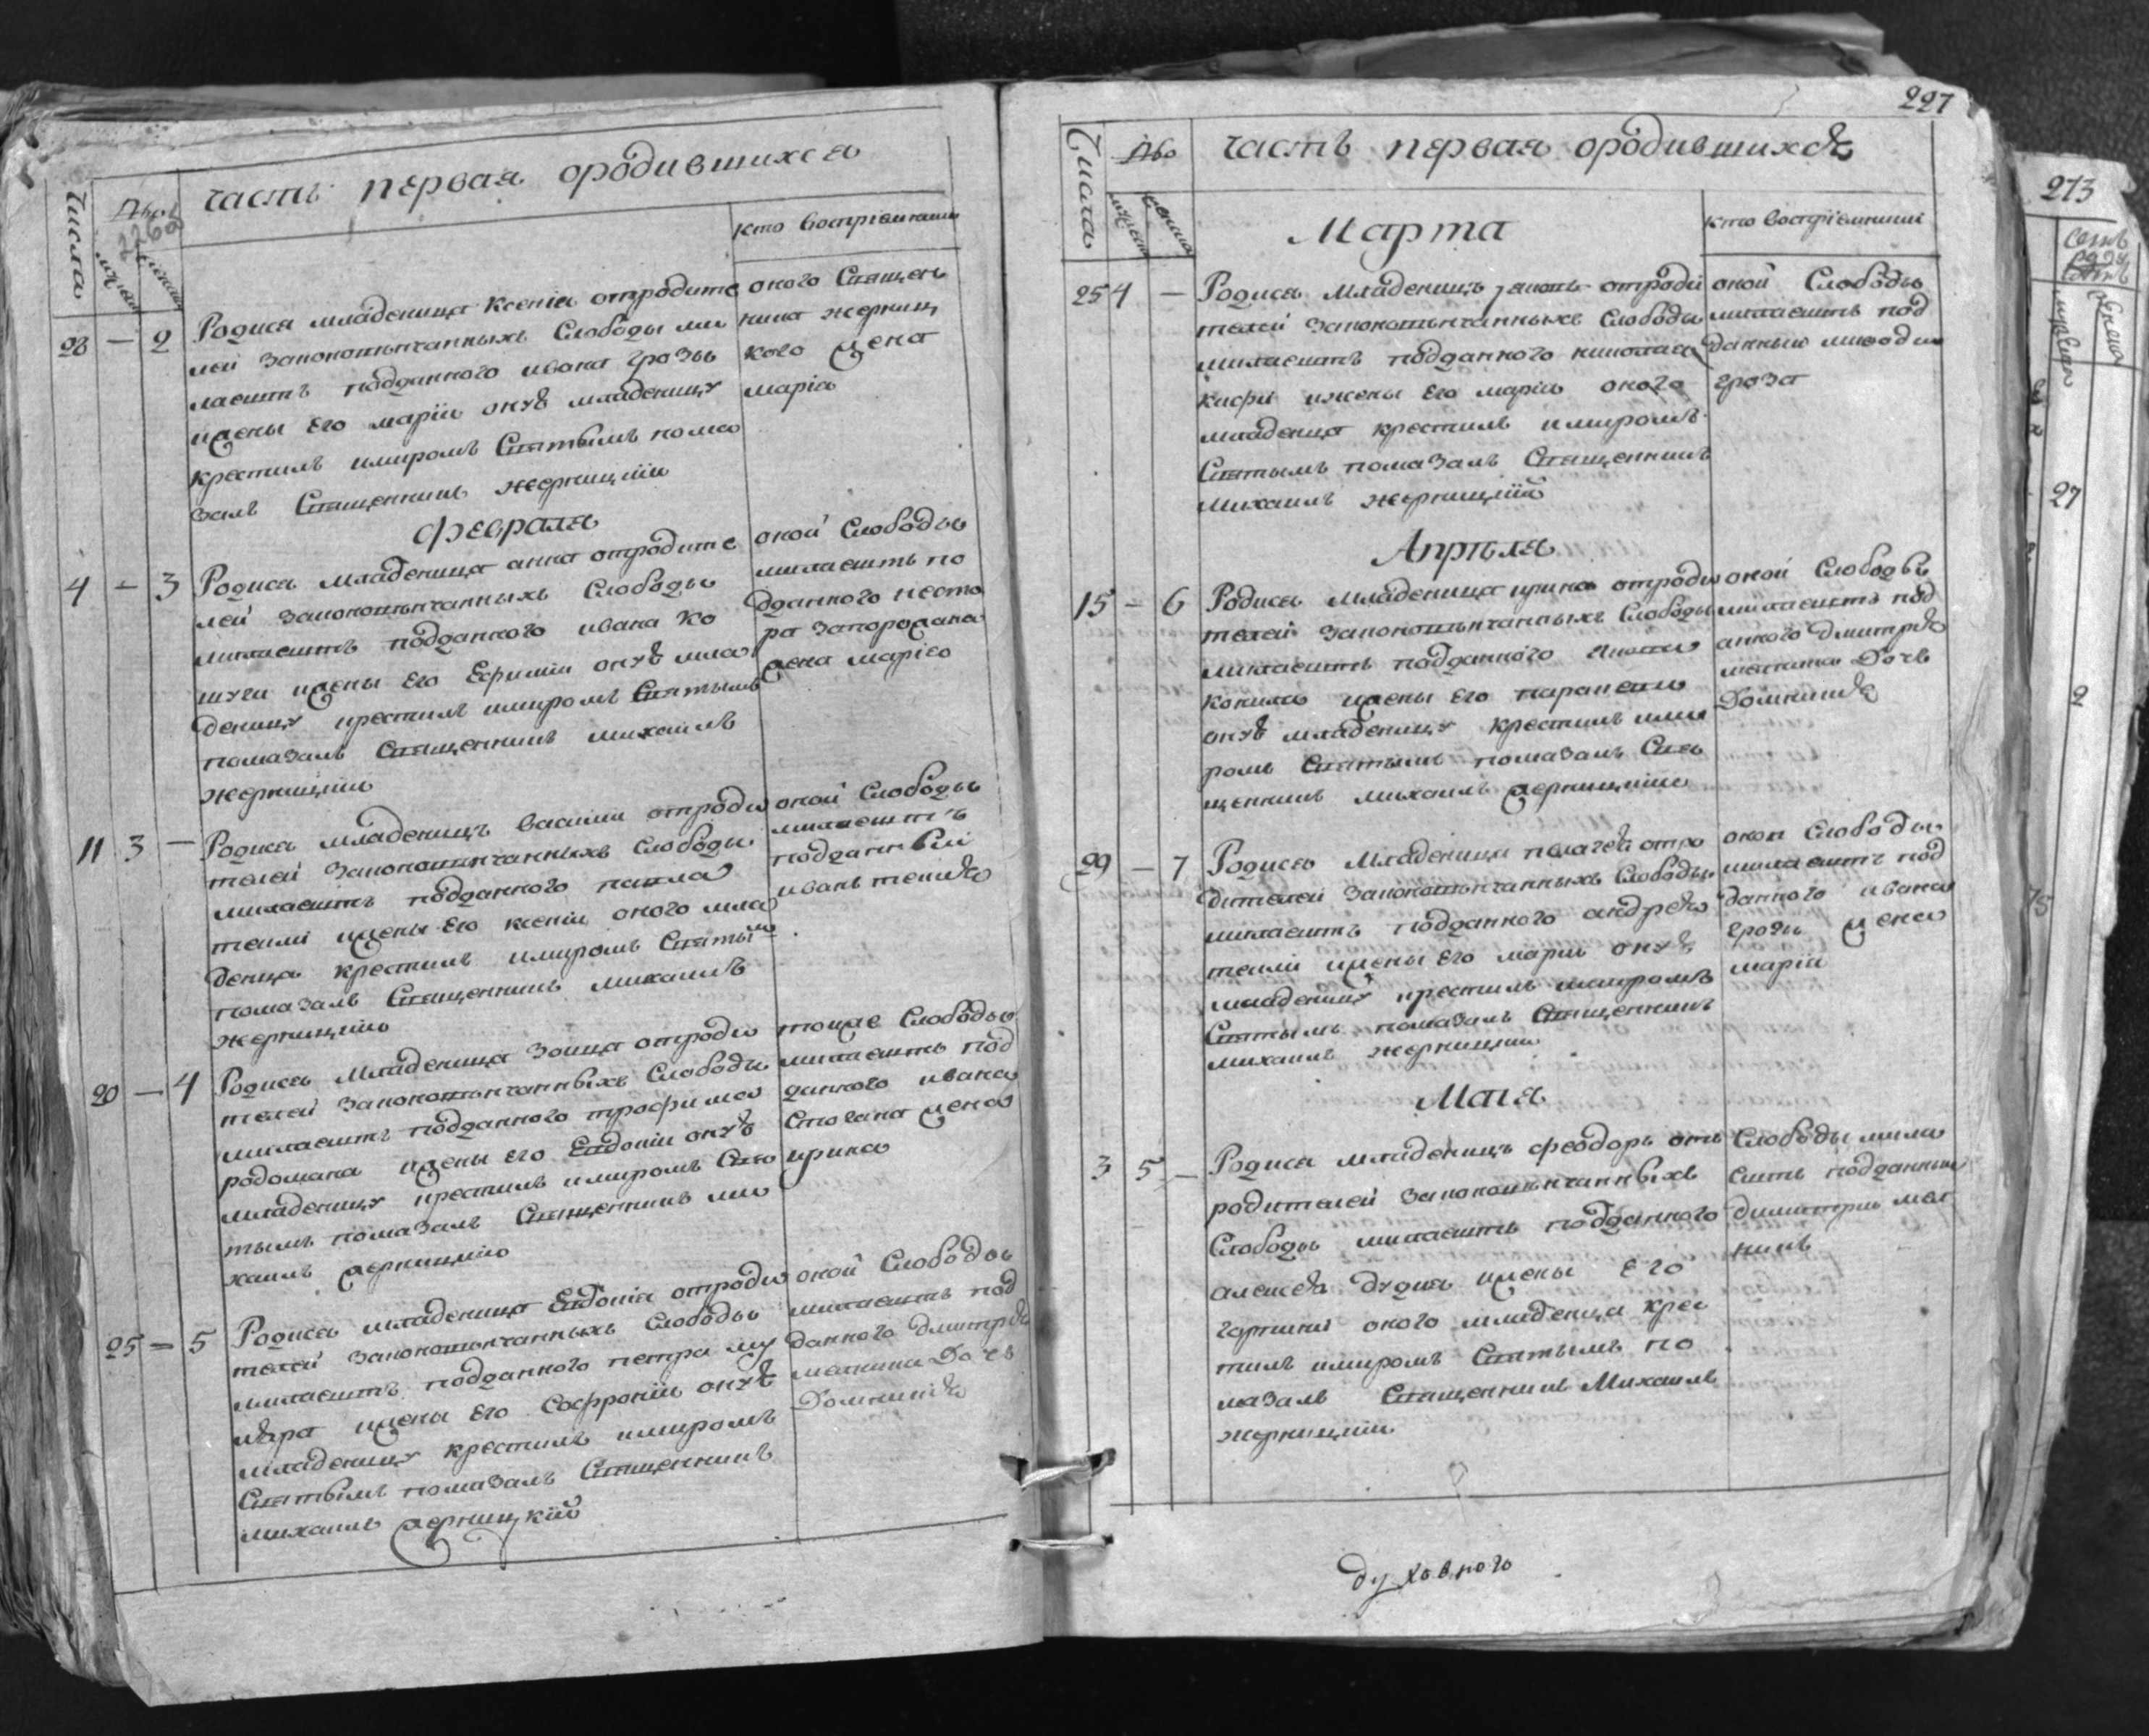 часть первая ородившихся
Числа
кто восприемники
28 — 2
Родися младеница ксенія отродите
лей законовѣнчанныхъ Слободы ми
лаешть подданного ивана грозы
ижены его маріи онуѣ младеницу
крестилъ имиромъ Святымъ пома
залъ Священникъ жерницкій
оного Священ
ника жерниц
кого жена
марія
февраля
4 — 3
Родися младеница анна отродите
лей законовѣнчанныхъ Слободы
милаешть подданного ивана ко
ижены его Ефиміи онуѣ мла
деницу крестилъ имиромъ Святымъ
помазалъ Священникъ михаилъ
жерницкій
оной Слободы
милаешть по
дданного несто
ра запорожана
жена марія
11 3 —
Родися младеницъ василій отроди
телей законовѣнчанныхъ Слободы
милаешть подданного павла
ижены его ксеніи оного мла
денца крестилъ имиромъ Святымъ
помазалъ Священникъ михаилъ
жерницкій
оной Слободы
милаешть
подданный
иванъ
20 — 4
Родися младеница Зоица отроди
телей законовѣнчанныхъ Слободы
милаешть подданного трофима
родомана ижены его Евдокіи онуѣ
младеницу крестилъ имиромъ Свя
тымъ помазалъ Священникъ ми
хаилъ жерницкій
тояже Слободы
милаешть под
данного ивана
жена
ирина
25 — 5
Родися младеница Евдокія отроди
телей законовѣнчанныхъ Слободы
милаешть подданного петра му
ижены его Софроніи онуѣ
младеницу крестилъ имиромъ
Святымъ помазалъ Священникъ
михаилъ жерницкій
оной Слободы
милаешть под
данного дмитрѣя
малкина Дочь
Домникія
227
часть первая ородившихся
Числа
Марта
кто восприемники
25 4 —
Родися младеницъ отроди
телей законовѣнчанныхъ Слободы
милаешть подданного николая
ижены его маріи оного
младенца крестилъ имиромъ
Святымъ помазалъ Священникъ
Михаилъ жерницкій
оной Слободы
милаешть под
данный
гроза
Апрѣля
15 — 6
Родися младеница ирина отроди
телей законовѣнчанныхъ Слободы
милаешть подданного
ижены его
онуѣ младеницу крестилъ ими
ромъ Святымъ помазалъ Свя
щенникъ михаилъ жерницкій
оной Слободы
милаешть под
анного дмитрѣя
малкина Дочь
Домникія
29 — 7
Родися младеница пелагея отро
дителей законовѣнчанныхъ Слободы
милаешть подданного андрѣя
ижены его маріи онуѣ
младеницу крестилъ имиромъ
Святымъ помазалъ Священникъ
михаилъ жерницкій
оной Слободы
милаешть под
данного ивана
грозы жена
марія
Маія
3 5 —
Родися младеницъ феодоръ отъ
родителей законовѣнчанныхъ
Слободы милаешть подданного
алексѣя дудия ижены его
оного младенца крес
тилъ имиромъ Святымъ по
мазалъ Священникъ Михаилъ
жерницкій
Слободы мила
ешть подданный
димитрій мал
кинъ
духовного
273
27
2